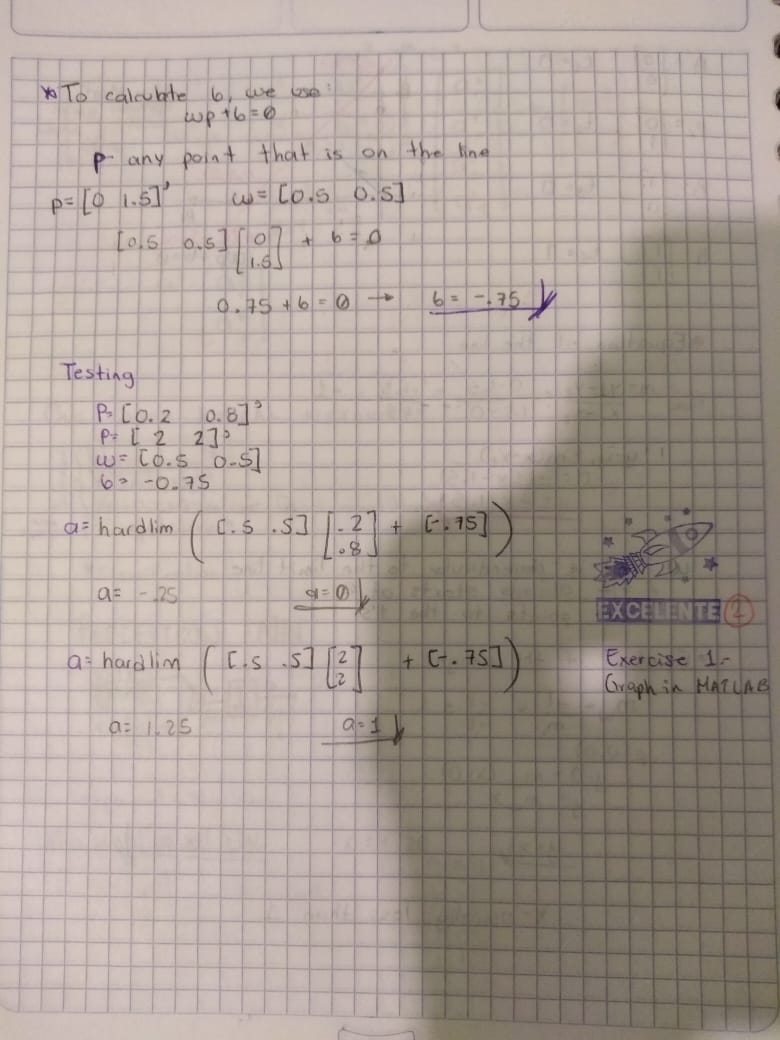 * To calculate b, we use:
wp + b = 0
p- any point that is on the line
p = [0 1.5]' w = [0.5 0.5]
[0.5 0.5] [0 1.5] + b = 0
0.75 + b = 0 → b = -.75
Testing
P= [0.2 0.8]'
P= [2 2]'
w= [0.5 0.5]
b= -0.75
a= hardlim ([.5 .5] [.2 .8] + [-.75])
a= -.25 a=0
EXCELENTE 2
a= hardlim ([.5 .5] [2 2] + [-.75])
Exercise 1.-
Graph in MATLAB
a= 1.25 a=1